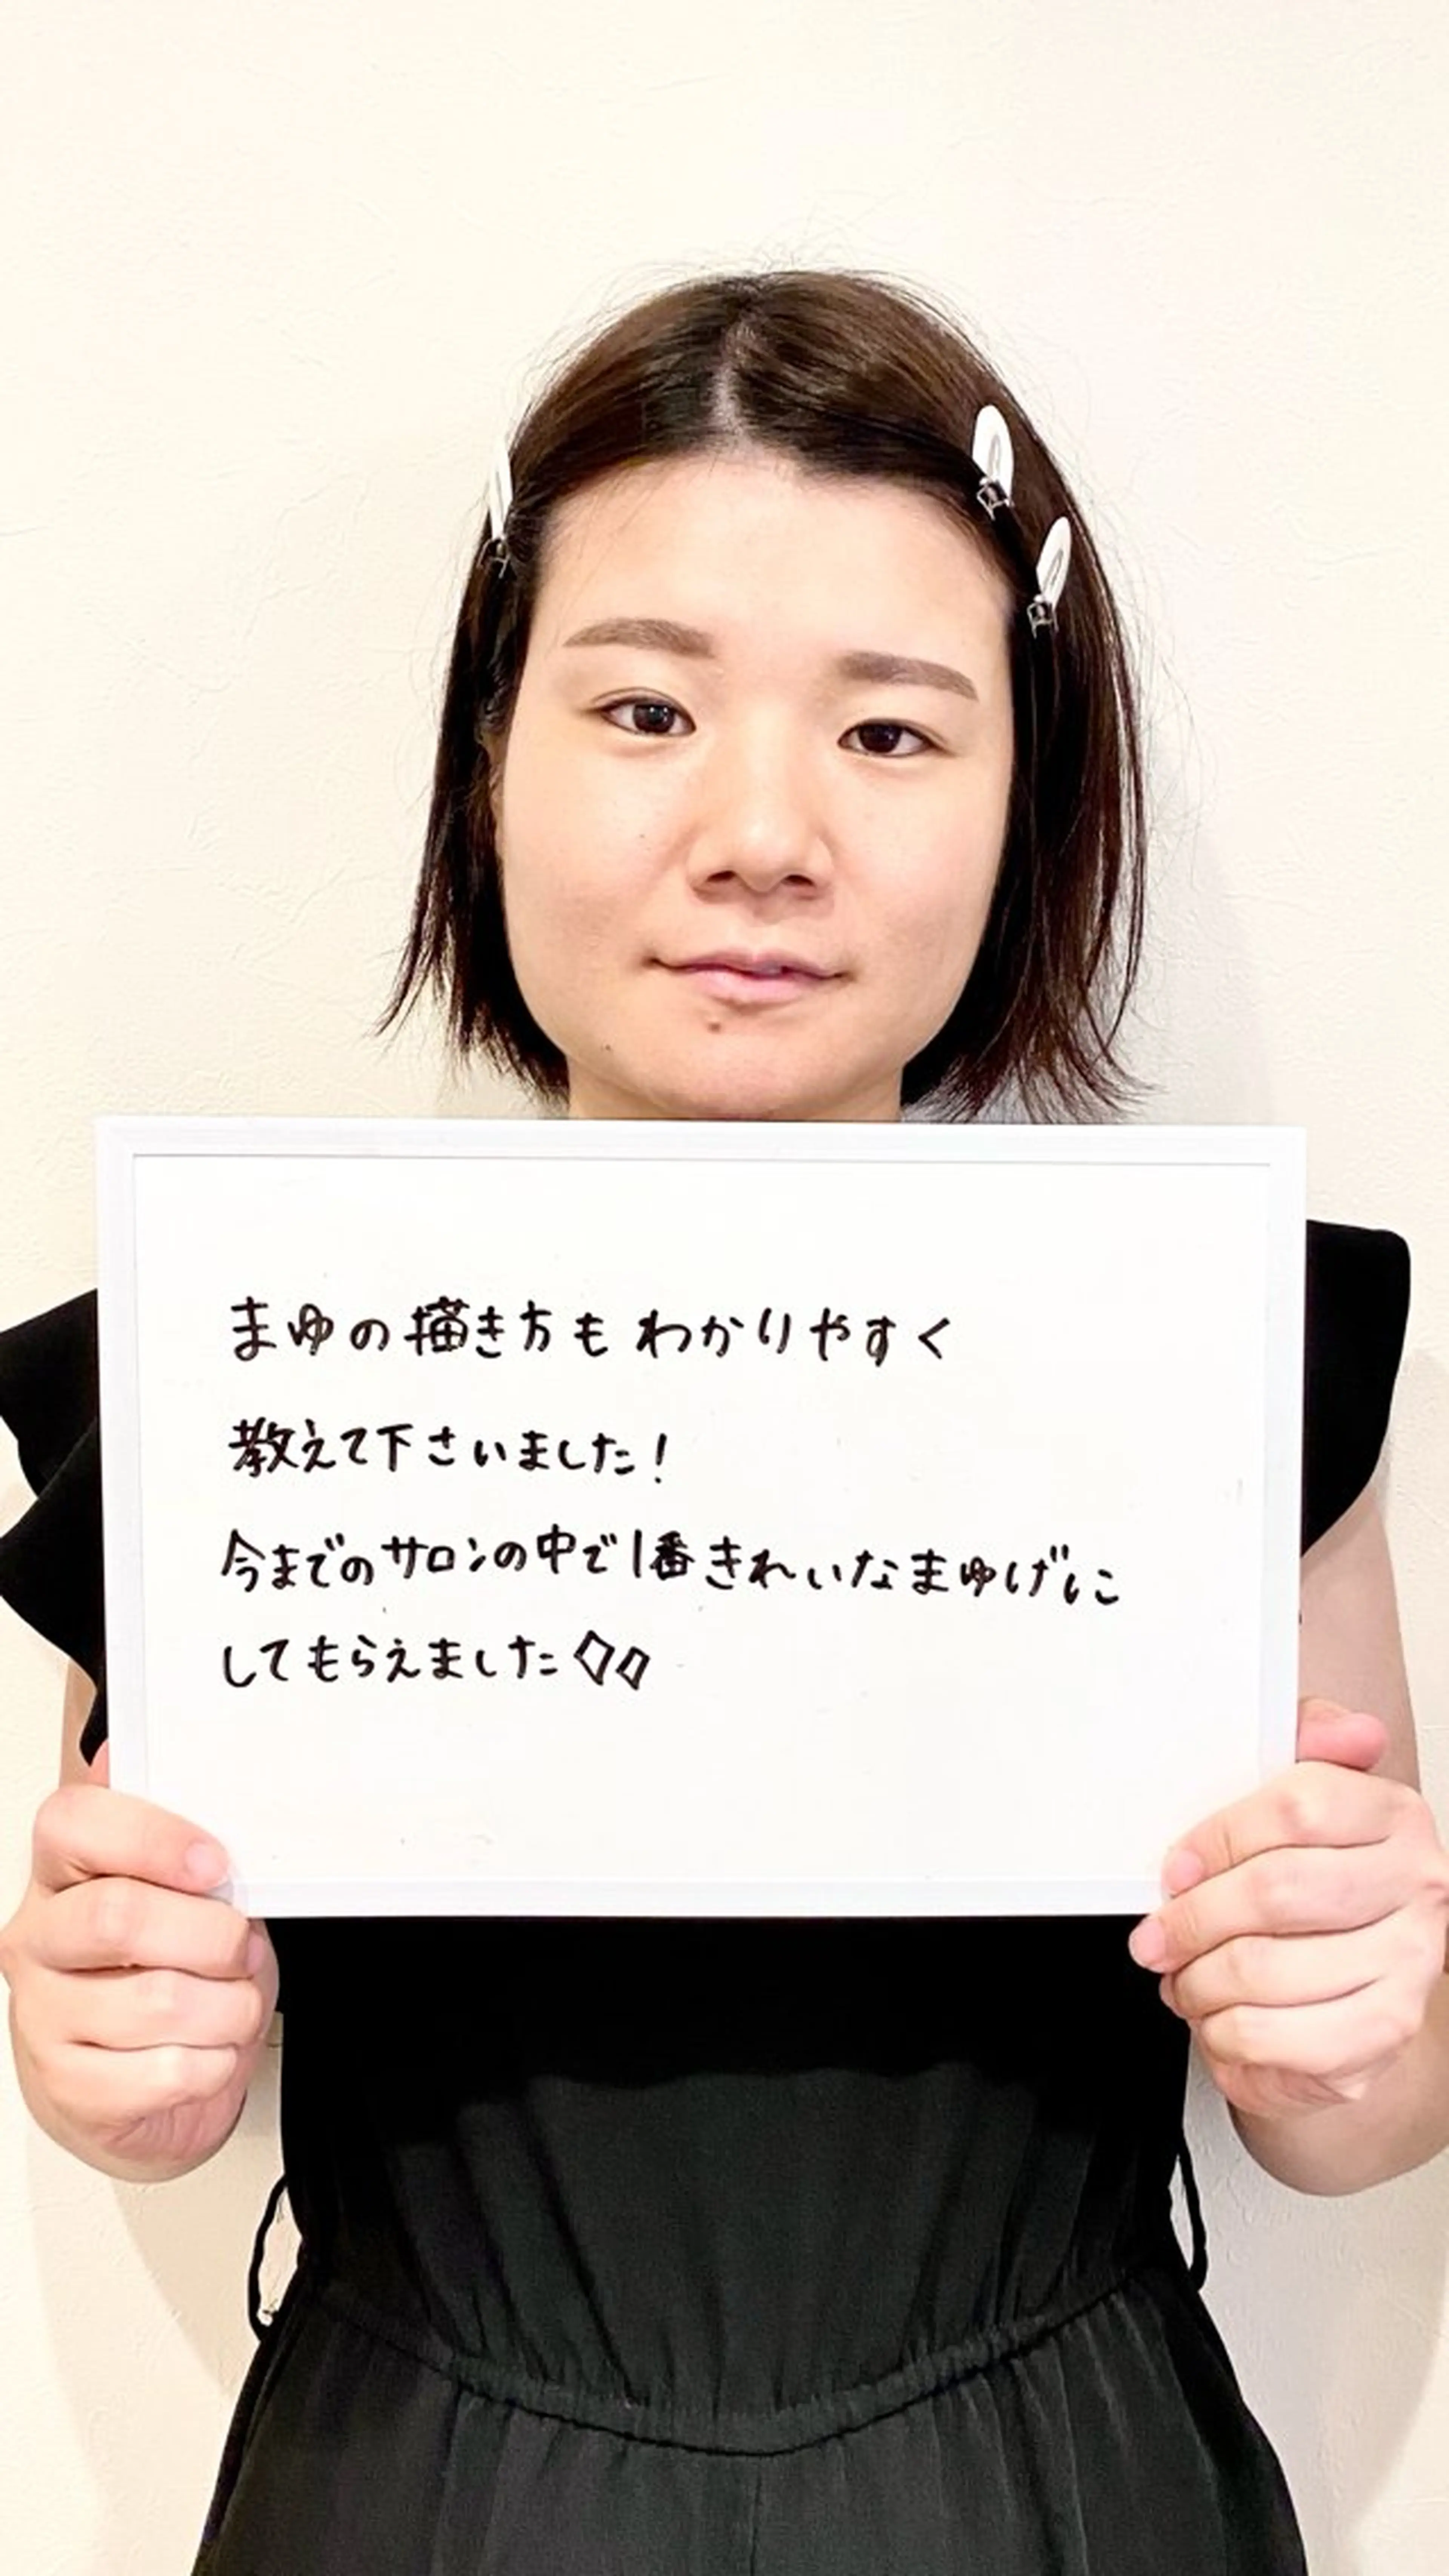 まゆの描き方もわかりやすく
教えて下さいました！
今までのサロンの中で1番きれいなまゆげに
してもらえました◇◇